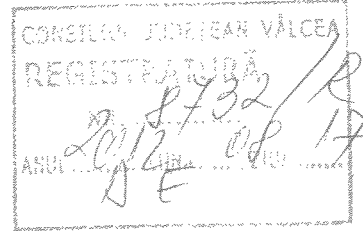 CONSILIUL JUDEȚEAN VÂLCEA
REGISTRATURĂ
NR. 8732/R
ANUL 2012 LUNA 08 ZIUA 17